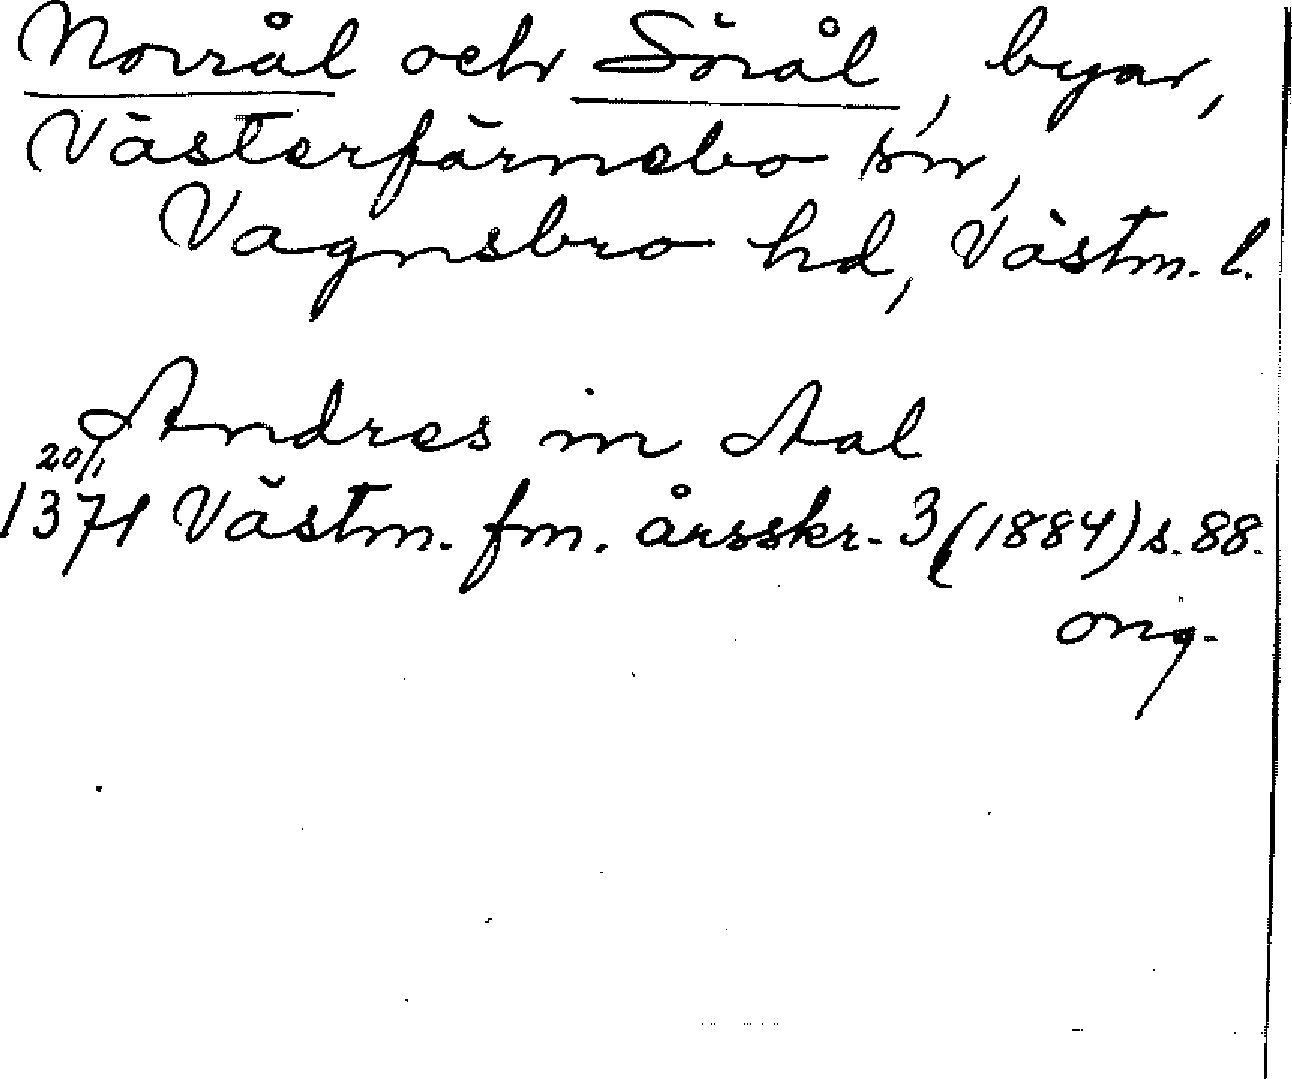 Norrål och Sörål, byar,
Västerfärnebo sn,
Vagnsbro hd, Västm. l.
Andres in Aal
20/1
1371 Västm. fm. årsskr. 3 (1884) s. 88.
orig.